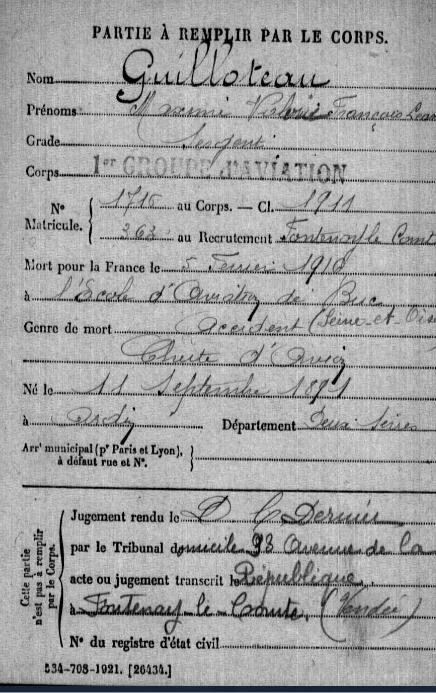 PARTIE À REMPLIR PAR LE CORPS.
Nom Guilloteau
Prénoms Maxime Valerie François Léan
Grade Sergent
Corps 1er GROUPE D'AVIATION
N° Matricule. { 1716 au Corps. — Cl. 1911
363 au Recrutement Fontenay le Comt
Mort pour la France le 5 Février 1916
à l'École d'Aviation de Buc
Genre de mort Accident (Seine-et-Oise
Chute d'Avion
Né le 11 Septembre 1891
à Ardin Département Deux Sèvres
Arrt municipal (pr Paris et Lyon), à défaut rue et N°. }
Cette partie n'est pas à remplir par le Corps.
Jugement rendu le D C Dernier
par le Tribunal domicile 93 Avenue de la
acte ou jugement transcrit le République
à Fontenay le Comte (Vendée)
N° du registre d'état civil
534-708-1921. [26434.]